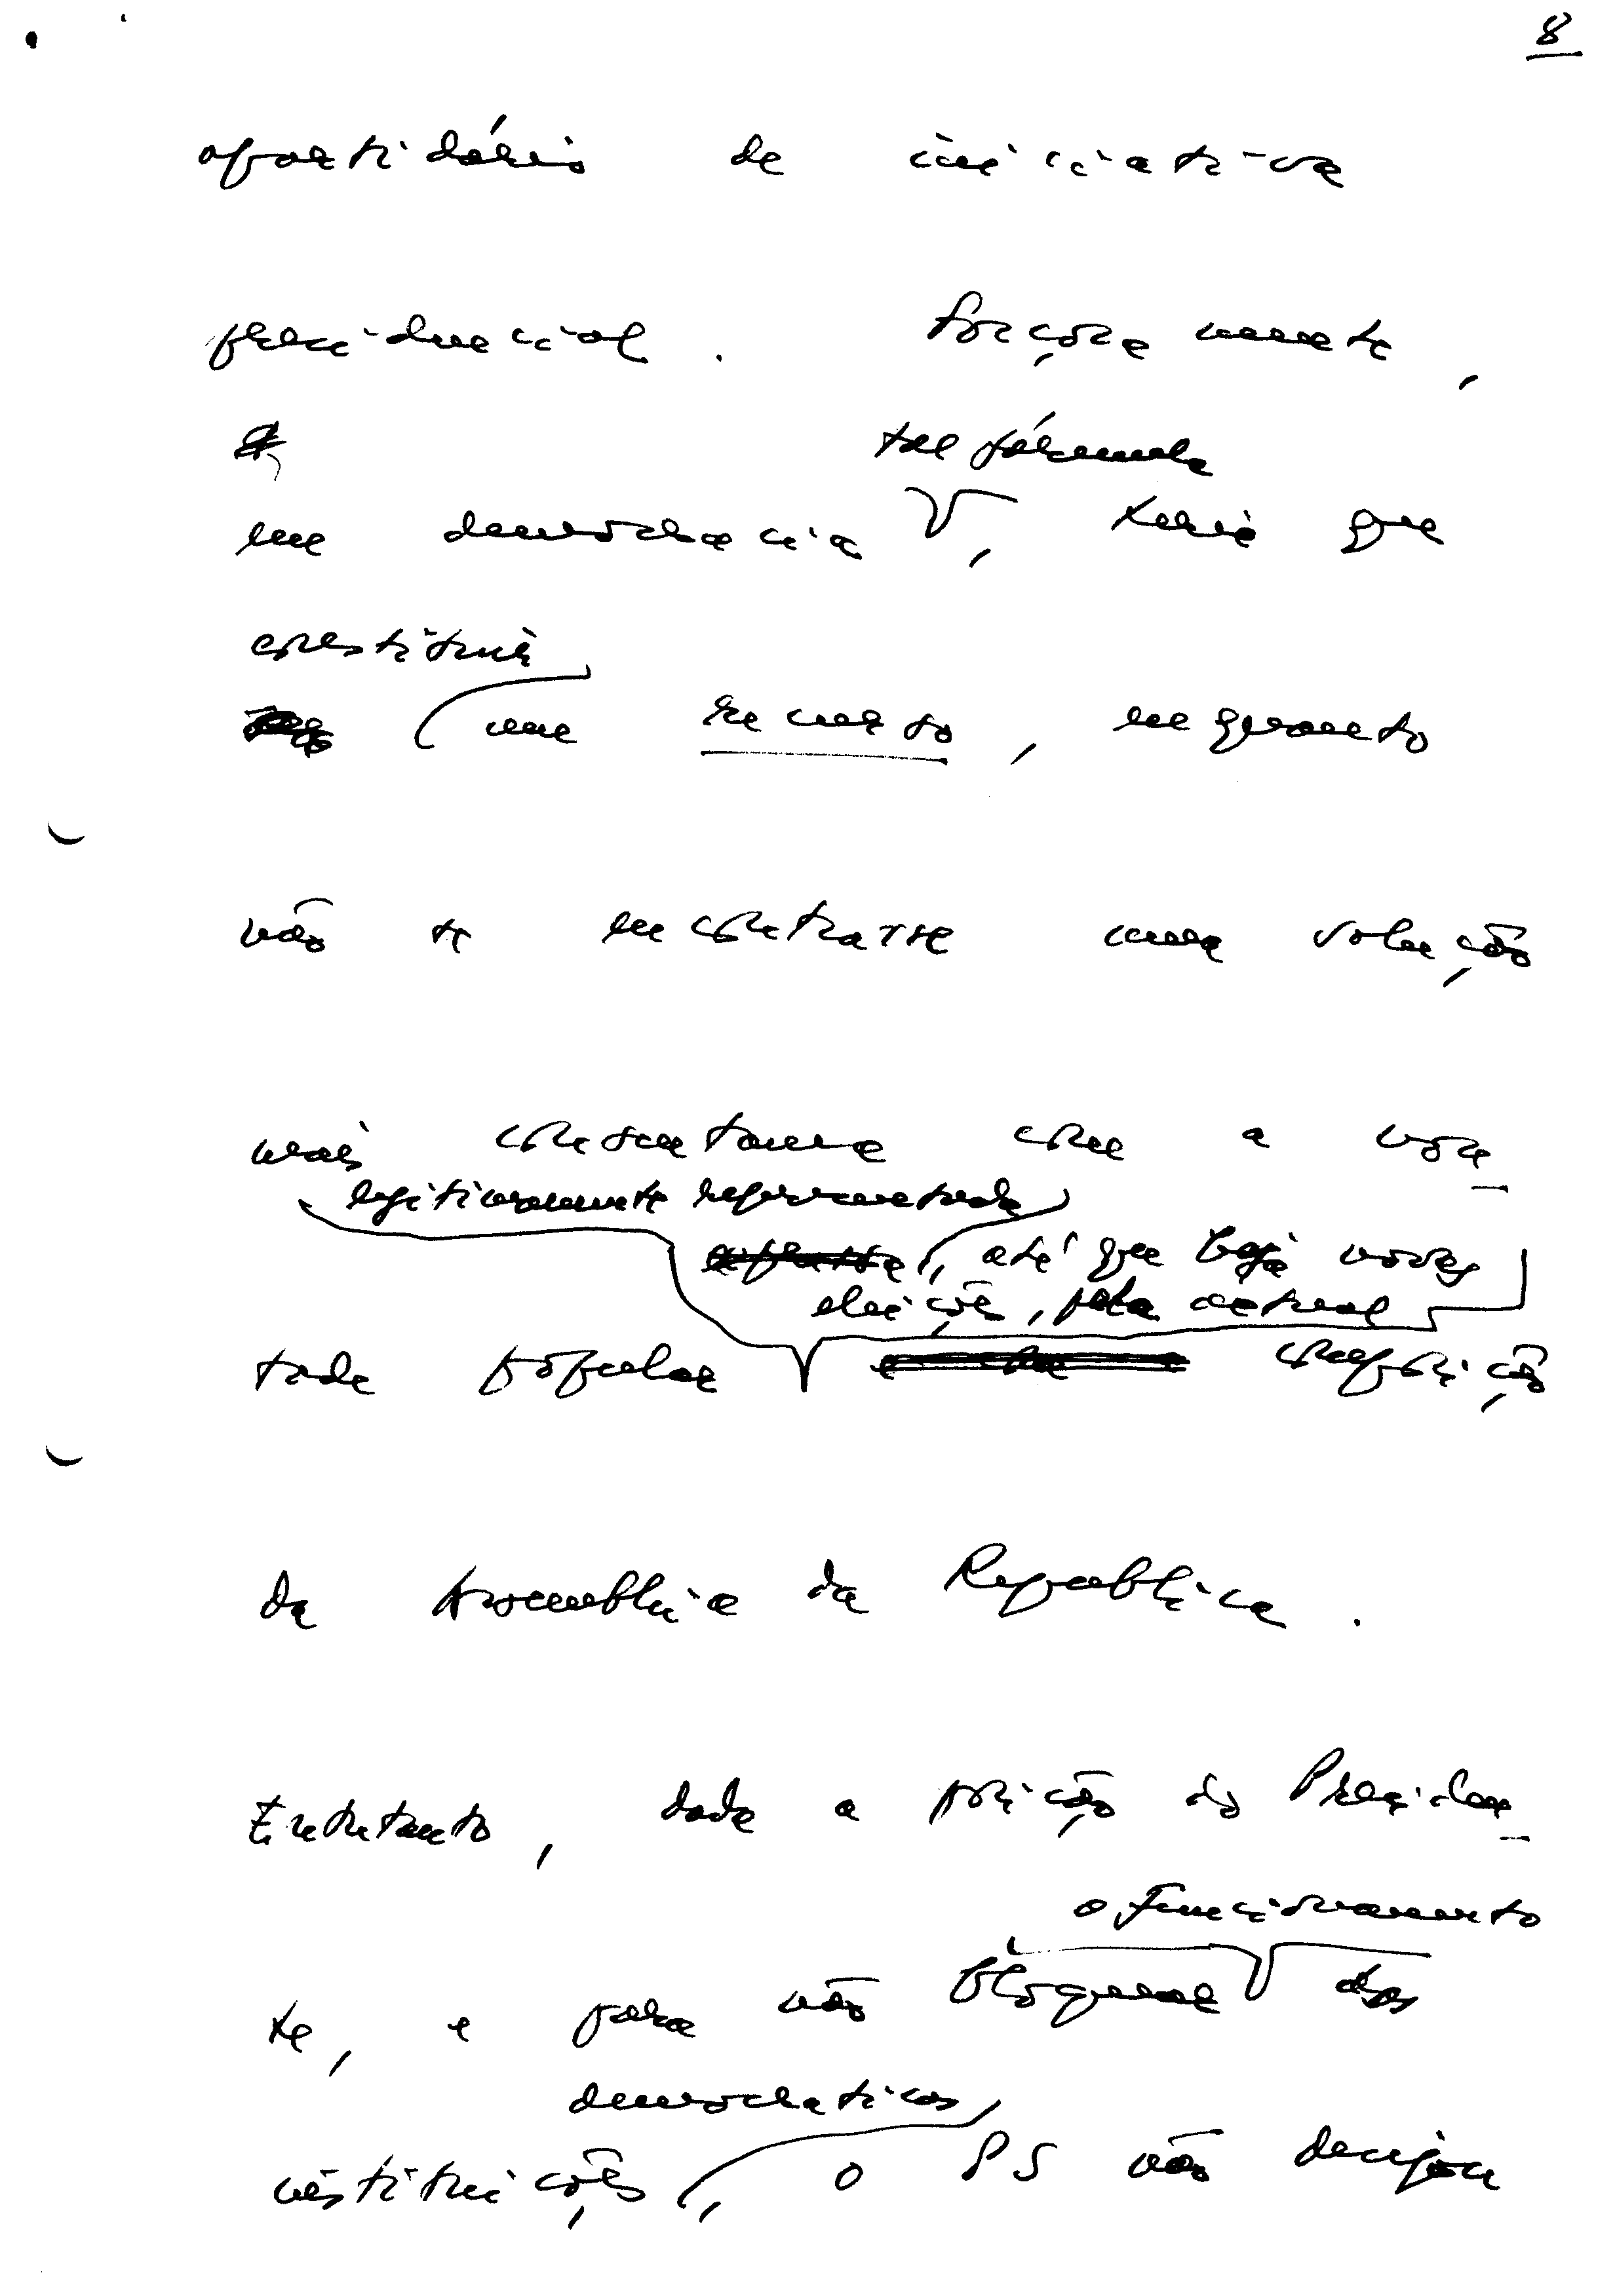 8
apartidário de iniciativa
presidencial. Forçosamente,
tal fórmula
em democracia, teria que
constituir
um recurso, enquanto
não se encontrasse uma solução
mais consentânea com a von-
legitimamente representada
, até que haja novas
eleições, pela actual
tade popular composição
da Assembleia da Republica.
Entretanto, dada a posição do Presiden-
o funcionamento
te, e para não bloquear das
democraticas,
instituições, o PS não desejou